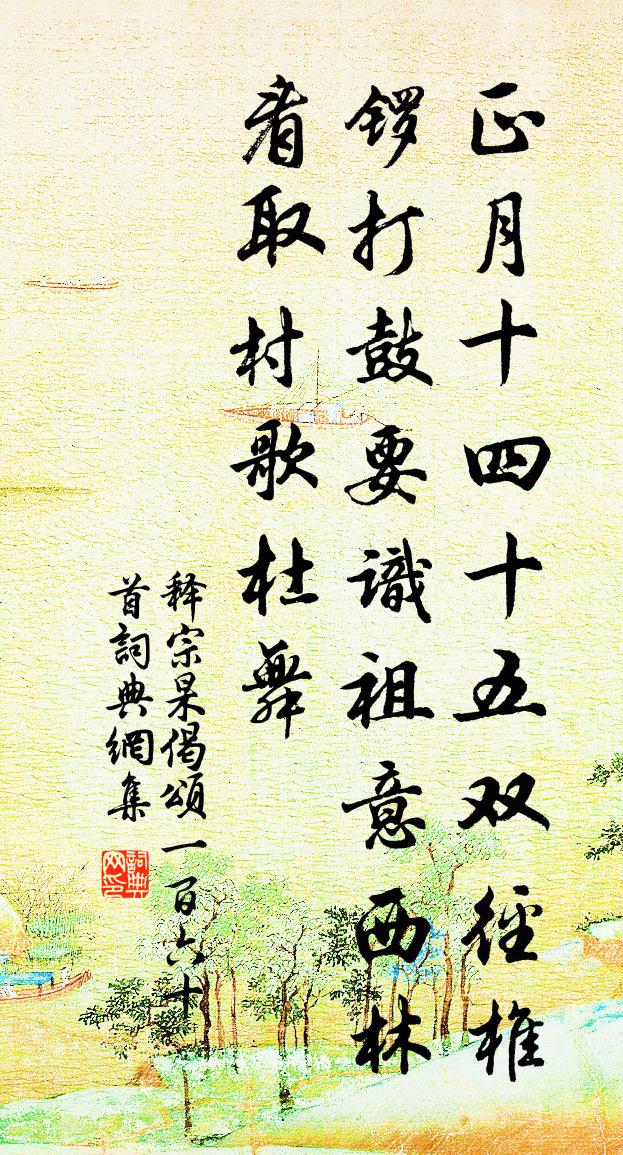 正月十四十五双徑椎
锣打鼓要識祖意西林
看取村歌社舞
释宗杲偈頌一百六十
首詞典網集
詞典
网印